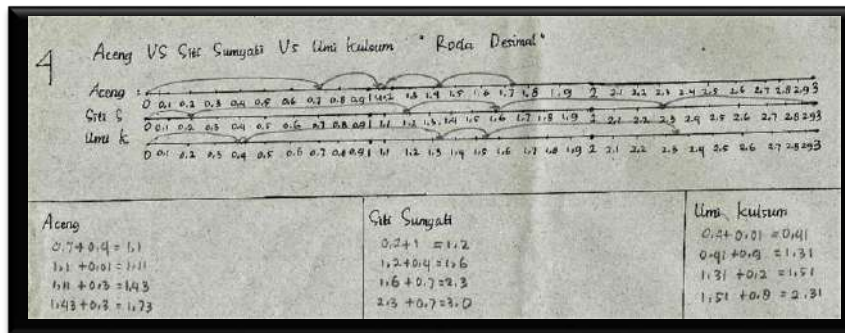 4
Aceng VS Siti Sumyati Vs Umi Kulsum "Roda Desimal"
Aceng :
0 0,1 0,2 0,3 0,4 0,5 0,6 0,7 0,8 0,9 1 1,3 1,4 1,5 1,6 1,7 1,8 1,9 2 2,1 2,2 2,3 2,4 2,5 2,6 2,7 2,8 2,9 3
Siti S
0 0,1 0,2 0,3 0,4 0,5 0,6 0,7 0,8 0,9 1 1,1 1,2 1,3 1,4 1,5 1,6 1,7 1,8 1,9 2 2,1 2,2 2,3 2,4 2,5 2,6 2,7 2,8 2,9 3
Umi K
0 0,1 0,2 0,3 0,4 0,5 0,6 0,7 0,8 0,9 1 1,1 1,2 1,3 1,4 1,5 1,6 1,7 1,8 1,9 2 2,1 2,2 2,3 2,4 2,5 2,6 2,7 2,8 2,9 3
Aceng
0,7+0,4 = 1,1
1,1 +0,01 = 1,11
1,11 +0,3 = 1,43
1,43 +0,3 = 1,73
Siti Sumyati
0,2+1 = 1,2
1,2+0,4 = 1,6
1,6 +0,7 = 2,3
2,3 +0,7 = 3,0
Umi Kulsum
0,4+0,01 = 0,41
0,41 +0,9 = 1,31
1,31 +0,2 = 1,51
1,51 +0,8 = 2,31